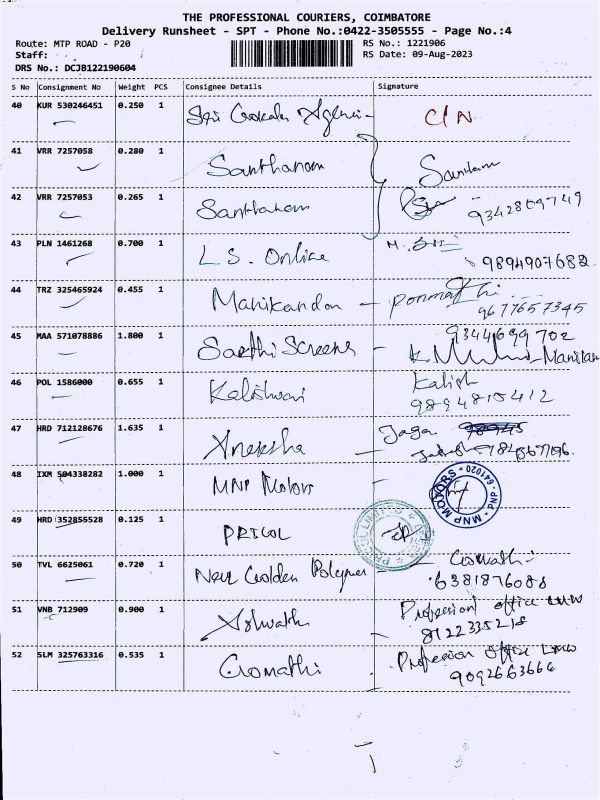 THE PROFESSIONAL COURIERS, COIMBATORE
Delivery Runsheet - SPT - Phone No.:0422-3505555 - Page No.:4
Route: MTP ROAD - P20
RS No.: 1221906
Staff:
RS Date: 09-Aug-2023
DRS No.: DCJB122190604
S No Consignment No Weight PCS Consignee Details Signature
40 KUR 530246451 0.250 1 Sri C/N
41 VRR 7257058 0.280 1 Santhanam
42 VRR 7257053 0.265 1 Santhanam 9342809749
43 PLN 1461268 0.700 1 L.S. Online
9894907682
44 TRZ 325465924 0.455 1 Manikandan - Ponmathi
9677657345
45 MAA 571078886 1.800 1 Sakthi Screens - 9344699702
46 POL 1586000 0.655 1 Kalishwari Kalish
9894815412
47 HRD 712128676 1.635 1 Jaga
48 IXM 504338282 1.000 1 MNP Motors MNP MOTORS PNP - 641020
49 HRD 352855528 0.125 1 PRICOL
50 TVL 6625061 0.720 1 New Golden Polymer Gomathi
6381876088
51 VNB 712909 0.900 1 Ashwath office
8122335218
52 SLM 325763316 0.535 1 Gomathi - office
9092663666